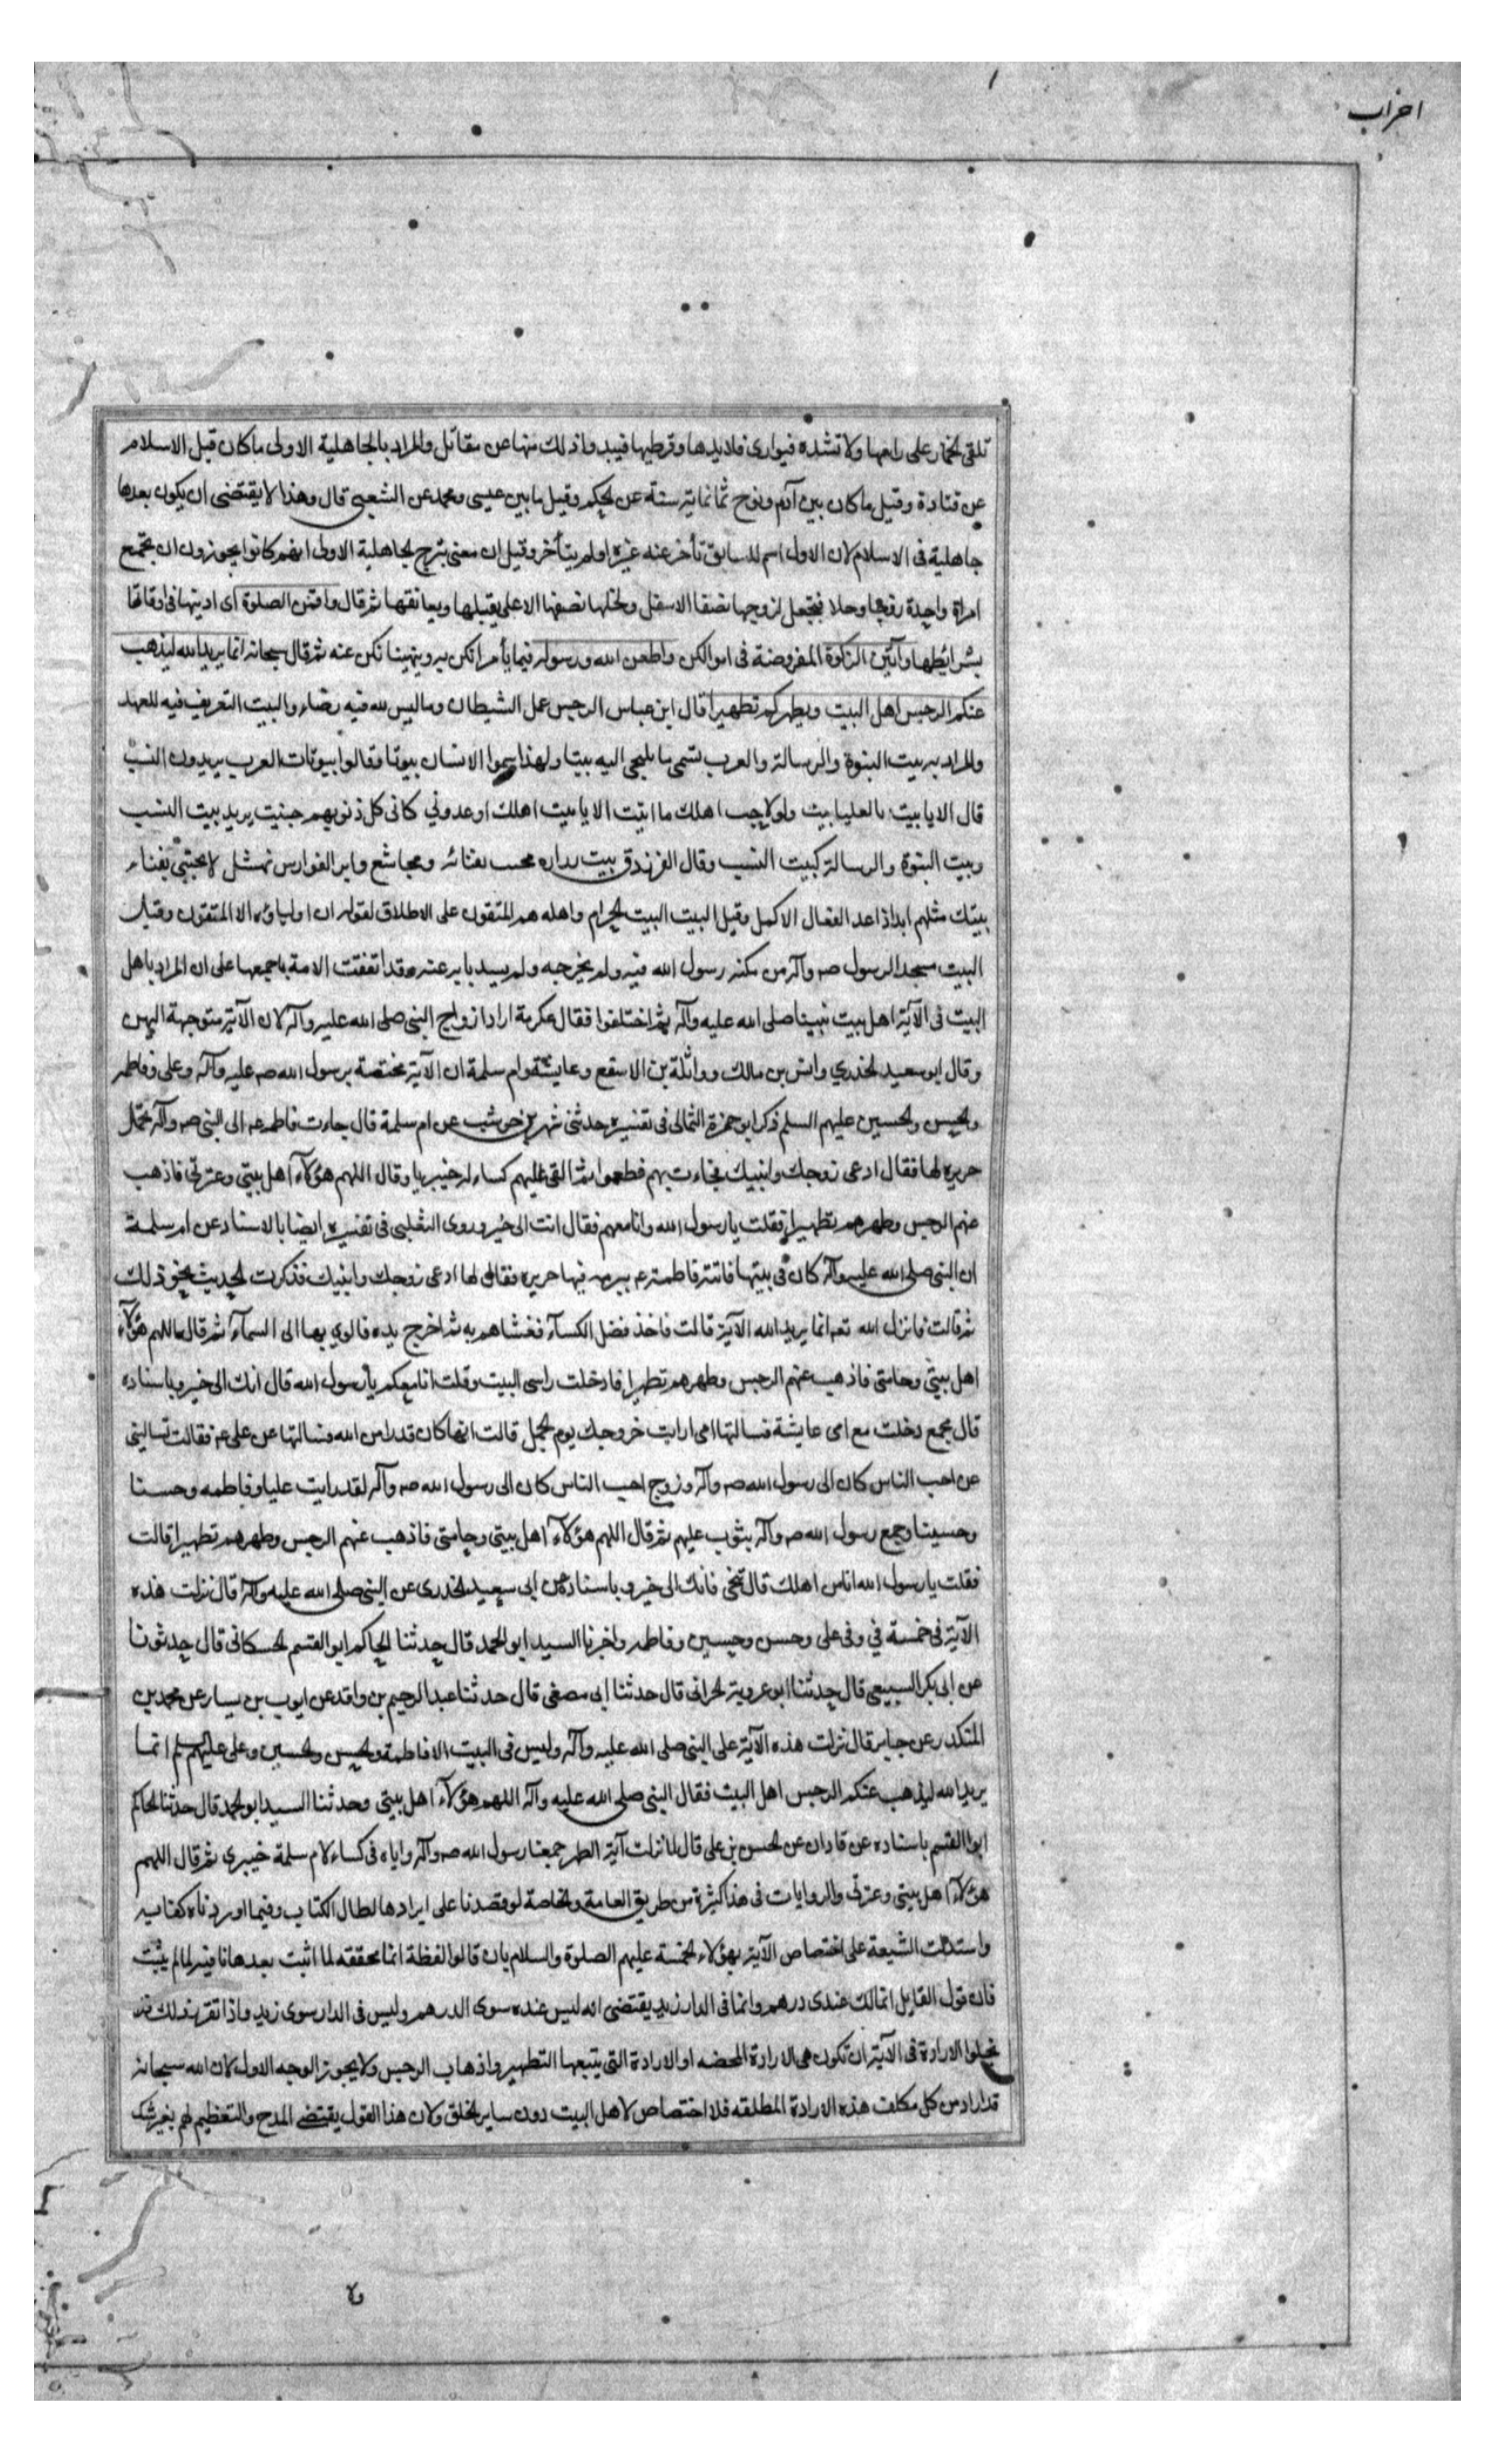 احزاب
تلقی الخمار علی راسها ولا تشده فیواری قلایدها وقرطیها فیبدو اذلك منها عن مقاتل والمراد بالجاهلیة الاولی ما کان قبل الاسلام
عن قتادة وقیل ما کان بین آدم ونوح ثمانمایة سنة عن الحکم وقیل ما بین عیسی ومحمد عن الشعبی قال وهذا لا یقتضی ان یکون بعدها
جاهلیة فی الاسلام لان الاول اسم للسابق تأخر عنه غیره او لم یتأخر وقیل ان معنی تبرج الجاهلیة الاولی انهم کانوا یجوزون ان تجمع
امراة واحدة زوجا وخلا فتجعل لزوجها نصفها الاسفل ولخلها نصفها الاعلی یقبلها ویعانقها ثم قال واقمن الصلوة ای ادینها فی اوقاتها
بشرایطها وآتین الزکوة المفروضة فی اموالکن واطعن الله ورسوله فیما یأمرانکن به وینهینا نکن عنه ثم قال سبحانه انما یرید الله لیذهب
عنکم الرجس اهل البیت ویطهرکم تطهیرا قال ابن عباس الرجس عمل الشیطان وما لیس لله فیه رضاء والبیت التعریف فیه للعهد
والمراد به بیت النبوة والرسالة والعرب تسمی ما یلجی الیه بیتا ولهذا سموا الانساب بیوتا وقالوا بیوتات العرب یریدون النسب
قال الا یا بیت بالعلیا بیت ولولا حب اهلك ما اتیت الا یا بیت اهلك اوعدونی کانی کل ذنوبهم جنیت یرید بیت النسب
وبیت النبوة والرسالة کبیت النسب وقال الفرزدق بیت زراره محتب بفنائه ومجاشع وابو الفوارس نهشل لا یحتبی بفناء
بیتك مثلهم ابدا اذا عد الفعال الاکمل وقیل البیت البیت الحرام واهله هم المتقون علی الاطلاق لقوله ان اولیاؤه الا المتقون وقیل
البیت مسجد الرسول صه وآله من مکنه رسول الله فیه ولم یخرجه ولم یسد بابه عنه وقد اتفقت الامة باجمعها علی ان المراد باهل
البیت فی الآیة اهل بیت نبینا صلی الله علیه وآله ثم اختلفوا فقال عکرمة اراد ازواج النبی صلی الله علیه وآله لان الآیة متوجهة الیهن
وقال ابو سعید الخدری وانس بن مالك وواثلة بن الاسقع وعایشة وام سلمة ان الآیة مختصة برسول الله صه علیه وآله وعلی وفاطمه
والحسن والحسین علیهم السلم ذکر ابو حمزة الثمالی فی تفسیره حدثنی شهر بن حوشب عن ام سلمة قال جاءت فاطمه عه الی النبی صه وآله تحمل
حریره لها فقال ادعی زوجك وابنیك فجاءت بهم فطعموا ثم القی علیهم کساء له خیبریا وقال اللهم هؤلاء اهل بیتی وعترتی فاذهب
عنهم الرجس وطهرهم تطهیرا فقلت یا رسول الله وانا معهم فقال انت الی خیر وروی الثعلبی فی تفسیره ایضا بالاسناد عن ام سلمة
ان النبی صلی الله علیه وآله کان فی بیتها فاتته فاطمة عه ببرمه فیها حریره فقال لها ادعی زوجك وابنیك فذکرت الحدیث نحو ذلك
ثم قالت فانزل الله تعه انما یرید الله الآیة قالت فاخذ فضل الکسآء فغشاهم به ثم اخرج یده فالوی بها الی السمآء ثم قال اللهم هؤلاء
اهل بیتی وحامتی فاذهب عنهم الرجس وطهرهم تطهیرا فادخلت راسی البیت وقلت انا معکم یا رسول الله قال انك الی خیر وباسناده
قال مجمع دخلت مع امی عایشة فسالتها امی ارایت خروجك یوم الجمل قالت انها کان قدرا من الله فسالتها عن علی عه فقالت تسالینی
عن احب الناس کان الی رسول الله صه وآله وزوج احب الناس کان الی رسول الله صه وآله لقد رایت علیا وفاطمه وحسنا
وحسینا وجمع رسول الله صه وآله بثوب علیهم ثم قال اللهم هؤلاء اهل بیتی وحامتی فاذهب عنهم الرجس وطهرهم تطهیرا قالت
فقلت یا رسول الله انا من اهلك قال تنحی فانك الی خیر وباسناده عن ابی سعید الخدری عن النبی صلی الله علیه وآله قال نزلت هذه
الآیة فی خمسة فی وفی علی وحسن وحسین وفاطمه واخبرنا السید ابو الحمد قال حدثنا الحاکم ابو القسم الحسکانی قال حدثونا
عن ابی بکر السبیعی قال حدثنا ابو عروبة الحرانی قال حدثنا ابی مصفی قال حدثنا عبد الرحیم بن واقد عن ایوب بن سیار عن محمد بن
المنکدر عن جابر قال نزلت هذه الآیة علی النبی صلی الله علیه وآله ولیس فی البیت الا فاطمة والحسن والحسین وعلی علیهم سلم انما
یرید الله لیذهب عنکم الرجس اهل البیت فقال النبی صلی الله علیه وآله اللهم هؤلاء اهل بیتی وحدثنا السید ابو الحمد قال حدثنا الحاکم
ابو القسم باسناده عن قادان عن الحسن بن علی قال لما نزلت آیة الطهر جمعنا رسول الله صه وآله وایاه فی کساء لام سلمة خیبری ثم قال اللهم
هؤلاء اهل بیتی وعترتی والروایات فی هذا کثیرة من طریق العامة والخاصة لو قصدنا علی ایرادها لطال الکتاب وفیما اوردناه کفایه
واستدلت الشیعة علی اختصاص الآیة بهؤلاء الخمسة علیهم الصلوة والسلام بان قالوا لفظة انما محققه لما اثبت بعدها نافیه لما لم یثبت
فان قول القایل انما لك عندی درهم وانما فی الدار زید یقتضی انه لیس عنده سوی الدرهم ولیس فی الدار سوی زید واذا تقرر ذلك فلا
تخلوا الارادة فی الآیة ان تکون هی الارادة المحضه او الارادة التی یتبعها التطهیر واذهاب الرجس ولا یجوز الوجه الاول لان الله سبحانه
قد اراد من کل مکلف هذه الارادة المطلقه فلا اختصاص لاهل البیت دون سایر الخلق ولان هذا القول یقتضی المدح والتعظیم لهم بغیر شك
ولا